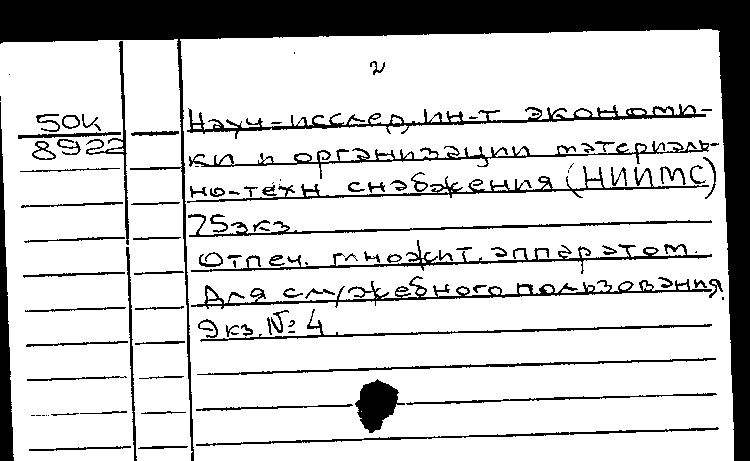 2
50к
8922
Науч-исслед. ин-т экономи-
ки и организации материаль-
но-техн. снабжения (НИИМС)
75 экз.
Отпеч. множит. аппаратом.
Для служебного пользования.
Экз. № 4.